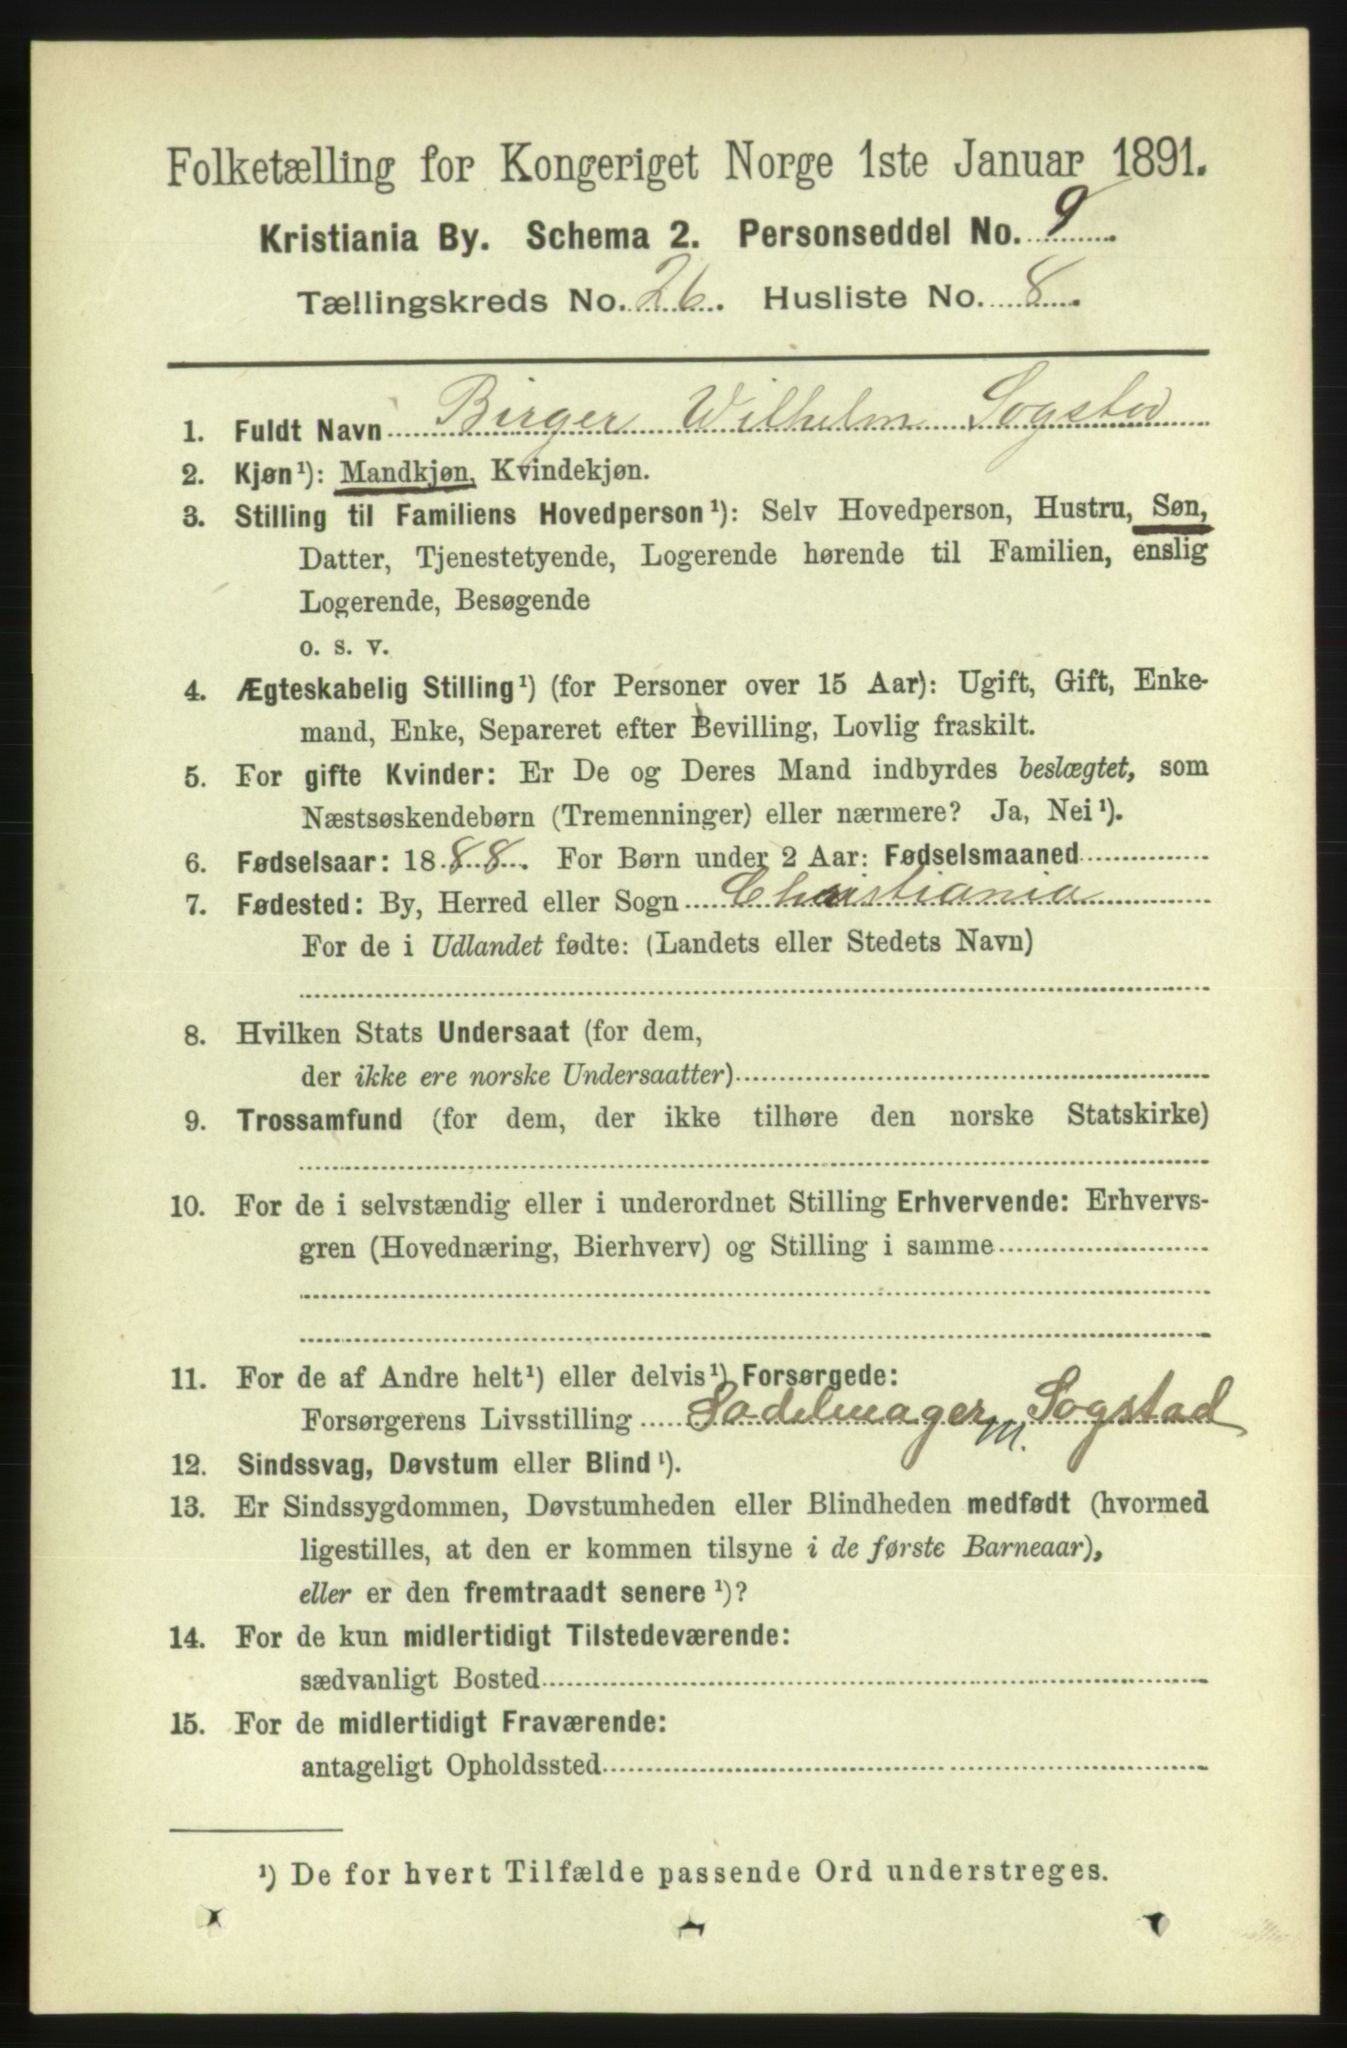 Folketælling for Kongeriget Norge 1ste Januar 1891.
Kristiania By. Schema 2. Personseddel No. 9
Tællingskreds No. 26. Husliste No. 8.
1. Fuldt Navn Birger Wilhelm Sogstad
2. Kjøn¹): Mandkjøn, Kvindekjøn.
3. Stilling til Familiens Hovedperson¹): Selv Hovedperson, Hustru, Søn,
Datter, Tjenestetyende, Logerende hørende til Familien, enslig
Logerende, Besøgende
o. s. v.
4. Ægteskabelig Stilling¹) (for Personer over 15 Aar): Ugift, Gift, Enke-
mand, Enke, Separeret efter Bevilling, Lovlig fraskilt.
5. For gifte Kvinder: Er De og Deres Mand indbyrdes beslægtet, som
Næstsøskendebørn (Tremenninger) eller nærmere? Ja, Nei¹).
6. Fødselsaar: 1888. For Børn under 2 Aar: Fødselsmaaned
7. Fødested: By, Herred eller Sogn Christiania
For de i Udlandet fødte: (Landets eller Stedets Navn)
8. Hvilken Stats Undersaat (for dem,
der ikke ere norske Undersaatter)
9. Trossamfund (for dem, der ikke tilhøre den norske Statskirke)
10. For de i selvstændig eller i underordnet Stilling Erhvervende: Erhvervs-
gren (Hovednæring, Bierhverv) og Stilling i samme
11. For de af Andre helt¹) eller delvis¹) Forsørgede:
Forsørgerens Livsstilling Sadelmager m. Sogstad
12. Sindssvag, Døvstum eller Blind¹).
13. Er Sindssygdommen, Døvstumheden eller Blindheden medfødt (hvormed
ligestilles, at den er kommen tilsyne i de første Barneaar),
eller er den fremtraadt senere¹)?
14. For de kun midlertidigt Tilstedeværende:
sædvanligt Bosted
15. For de midlertidigt Fraværende:
antageligt Opholdssted
¹) De for hvert Tilfælde passende Ord understreges.